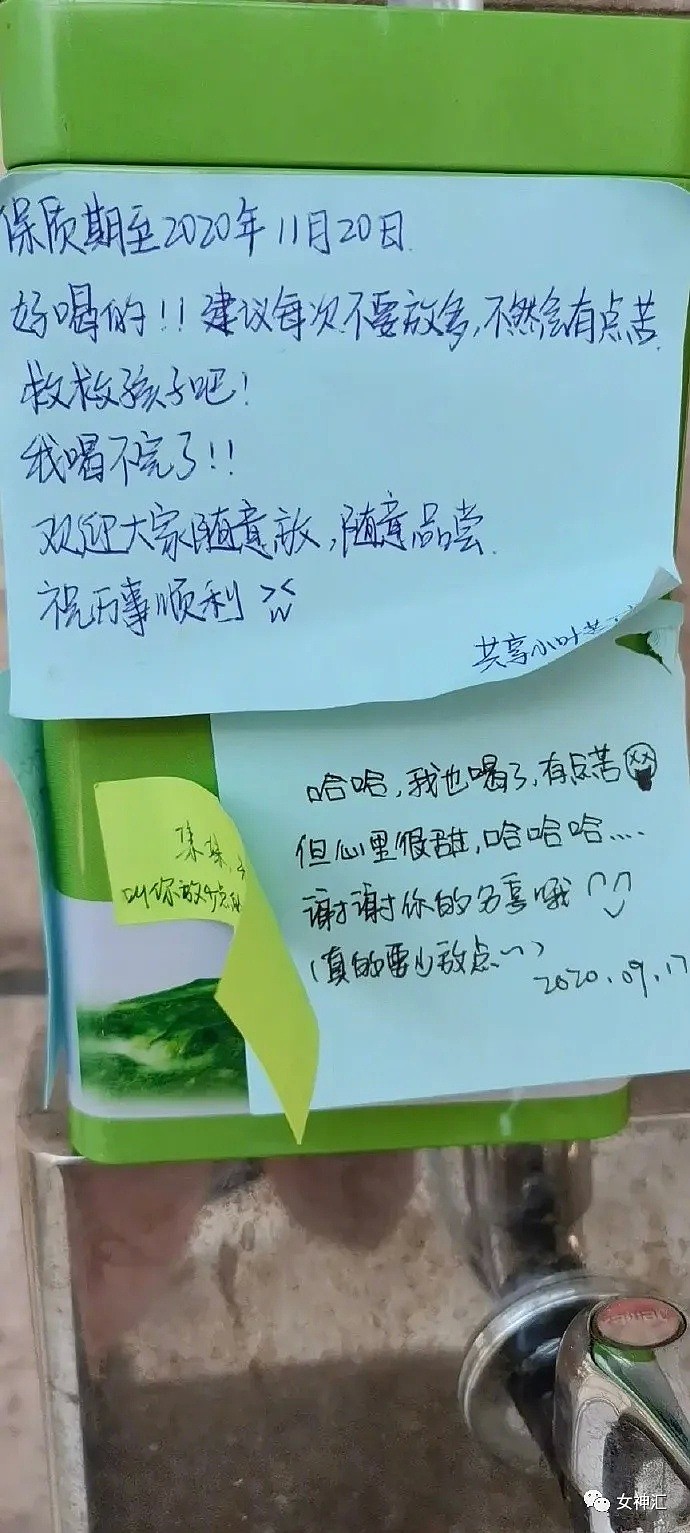 保质期至2020年11月20日.
好喝的!! 建议每次不要放多,不然会有点苦.
救救孩子吧!
我喝不完了!!
欢迎大家随意放,随意品尝.
祝万事顺利
共享小叶苦
哈哈,我也喝了,有点苦
但心里很甜,哈哈哈....
谢谢你的分享哦
(真的要少放点~)
2020.09.17
叫你放少点
女神汇